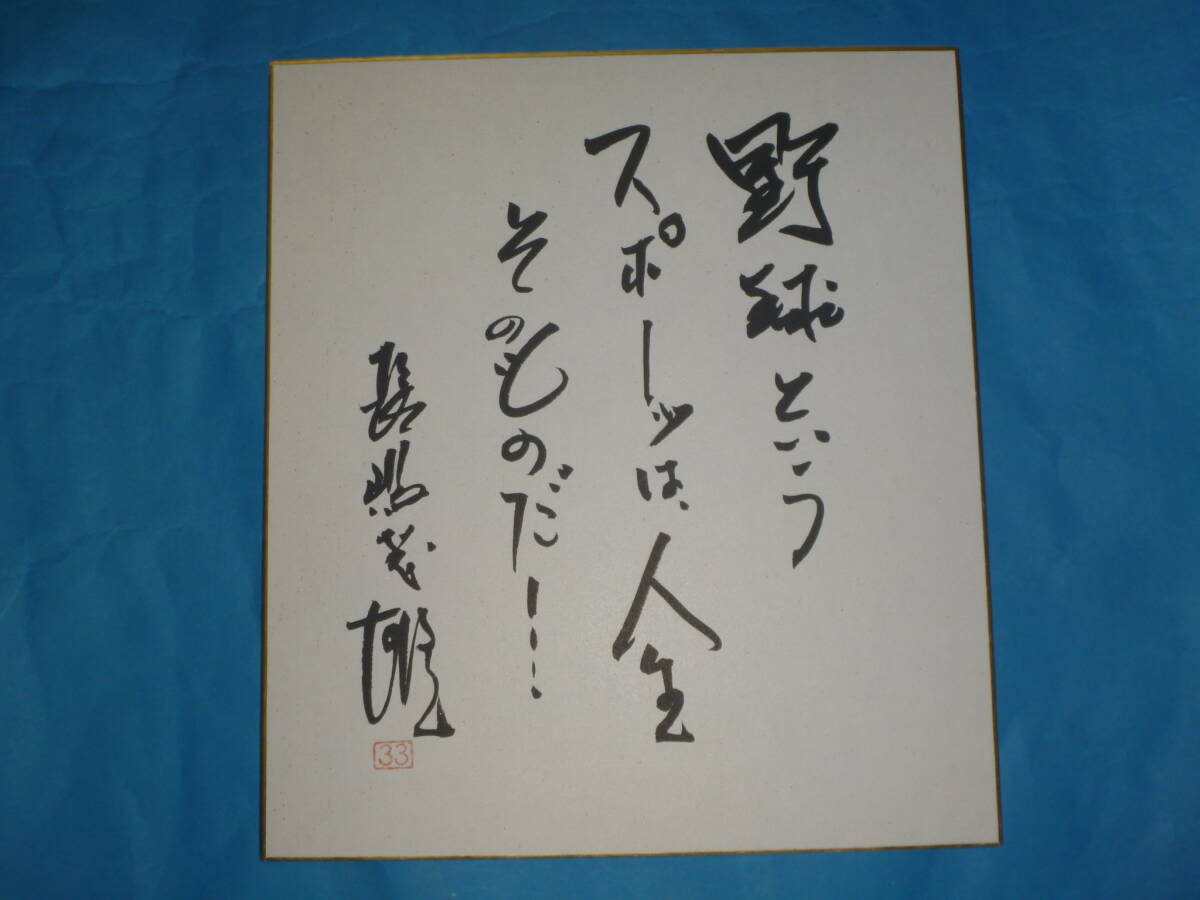 野球という
スポーツは、人生
そのものだ!…
長嶋茂雄
33